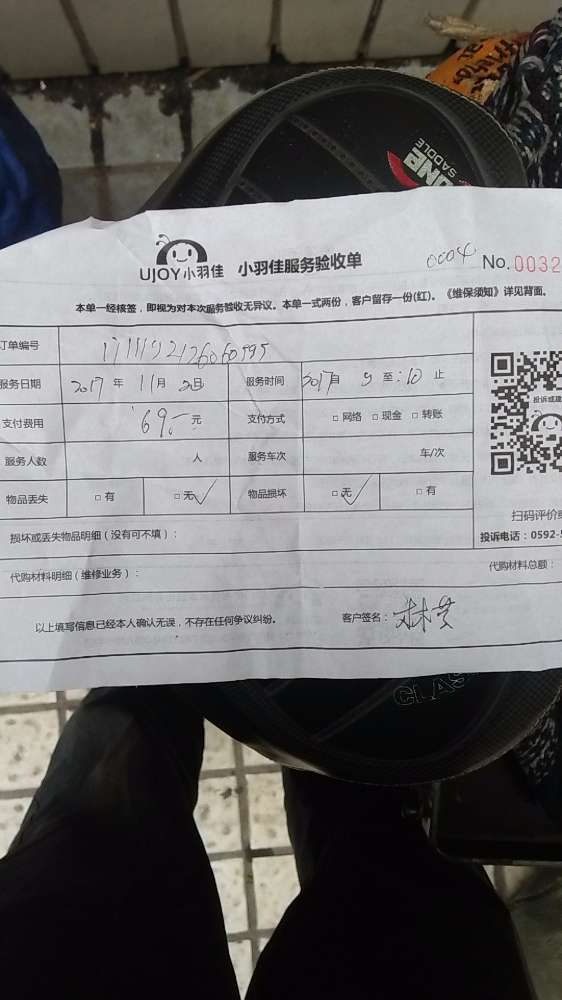 ONE
SADDLE
UJOY小羽佳 小羽佳服务验收单 0004 No.0032
本单一经核签，即视为对本次服务验收无异议。本单一式两份，客户留存一份(红)。《维保须知》详见背面。
订单编号
服务日期 2017年 11月 2日 服务时间 2017自 9至:10止
支付费用 69.-元 支付方式 □网络 □现金 □转账
投诉或建
服务人数 人 服务车次 车/次
物品丢失 □有 □无✓ 物品损坏 □无✓ □有
扫码评价
损坏或丢失物品明细（没有可不填）：
投诉电话：0592-5
代购材料明细（维修业务）： 代购材料总额：
以上填写信息已经本人确认无误，不存在任何争议纠纷。 客户签名：
CLAS